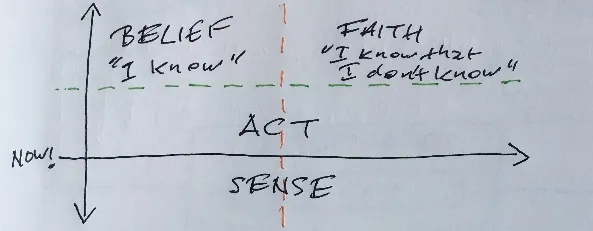 BELIEF
"I know"
FAITH
"I know that
I don't know"
ACT
NOW!
SENSE